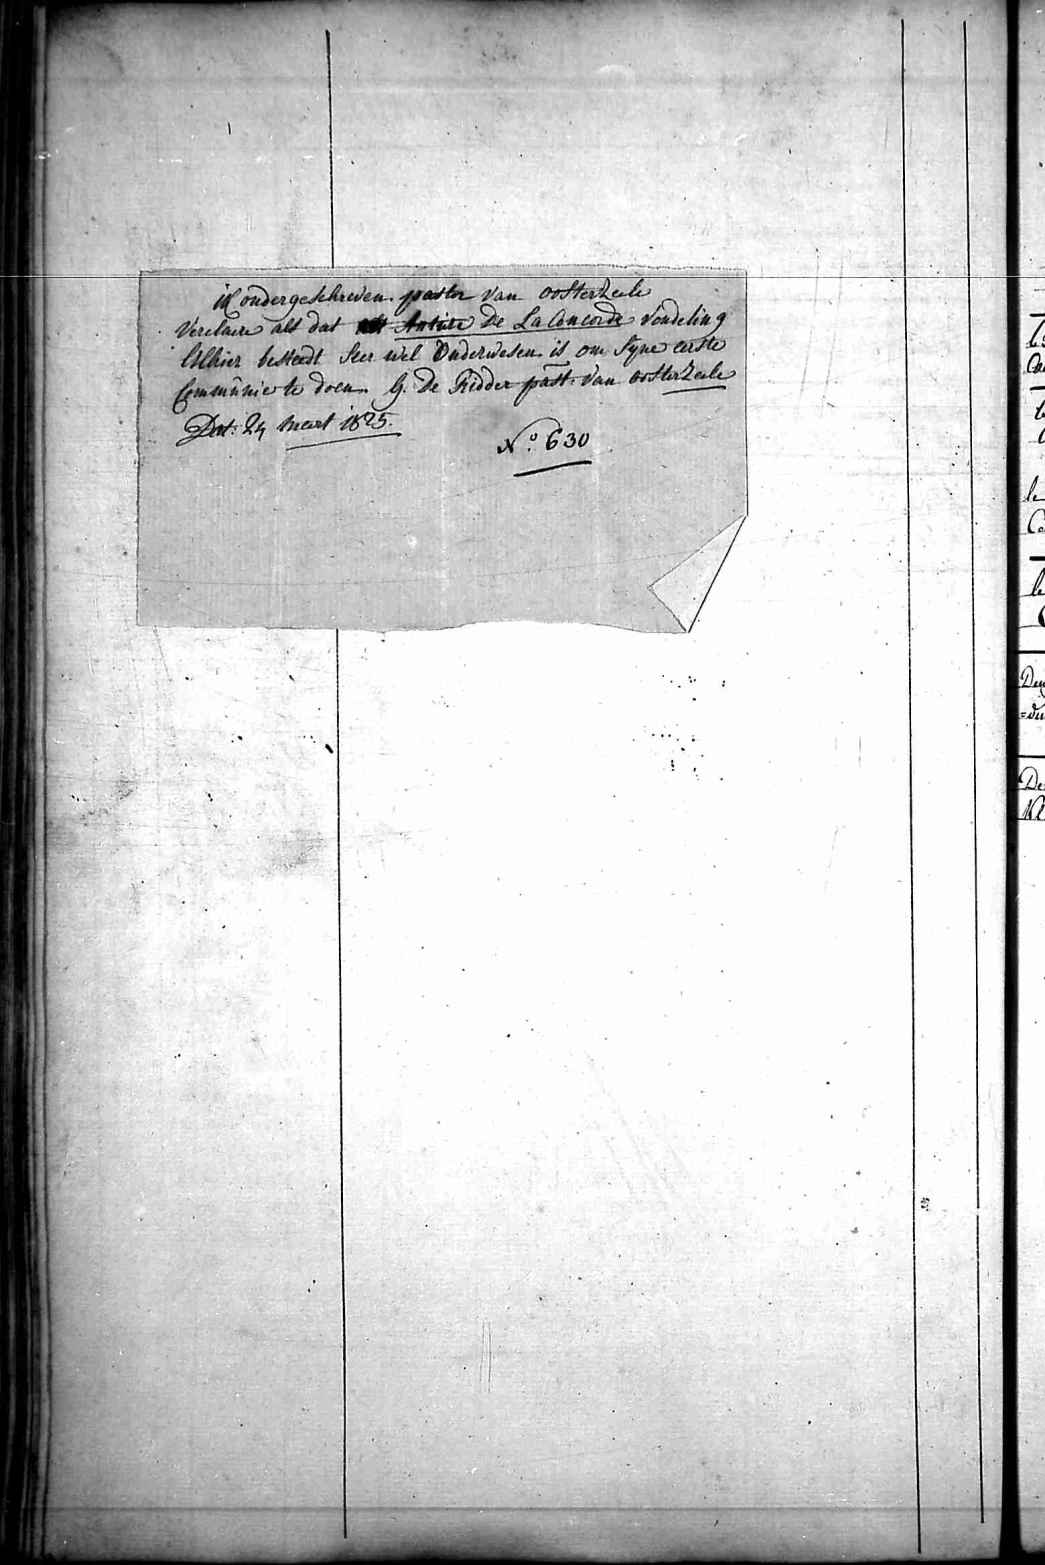 ik ondergeschreven pastor van oosterzeele
Verclaire als dat Antiere De La Concorde Vondeling
Alhier besteedt Seer wel Onderwesen is om Syne eerste
Communie te doen G. De Ridder past: van oosterzeele
Dat: 24 maert 1825.
N.º 630